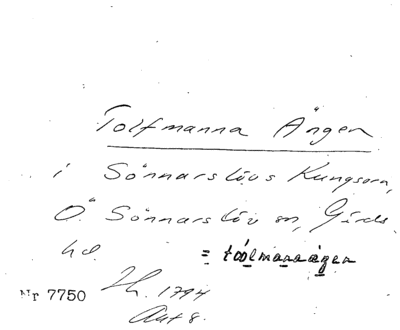 Tolfmanna Ängen
i Sönnarslövs Kungsorn,
Ö. Sönnarslöv sn, Gärds
hd. = tóolmannaägen
Nr 7750 Ih. 1794
Akt 8.